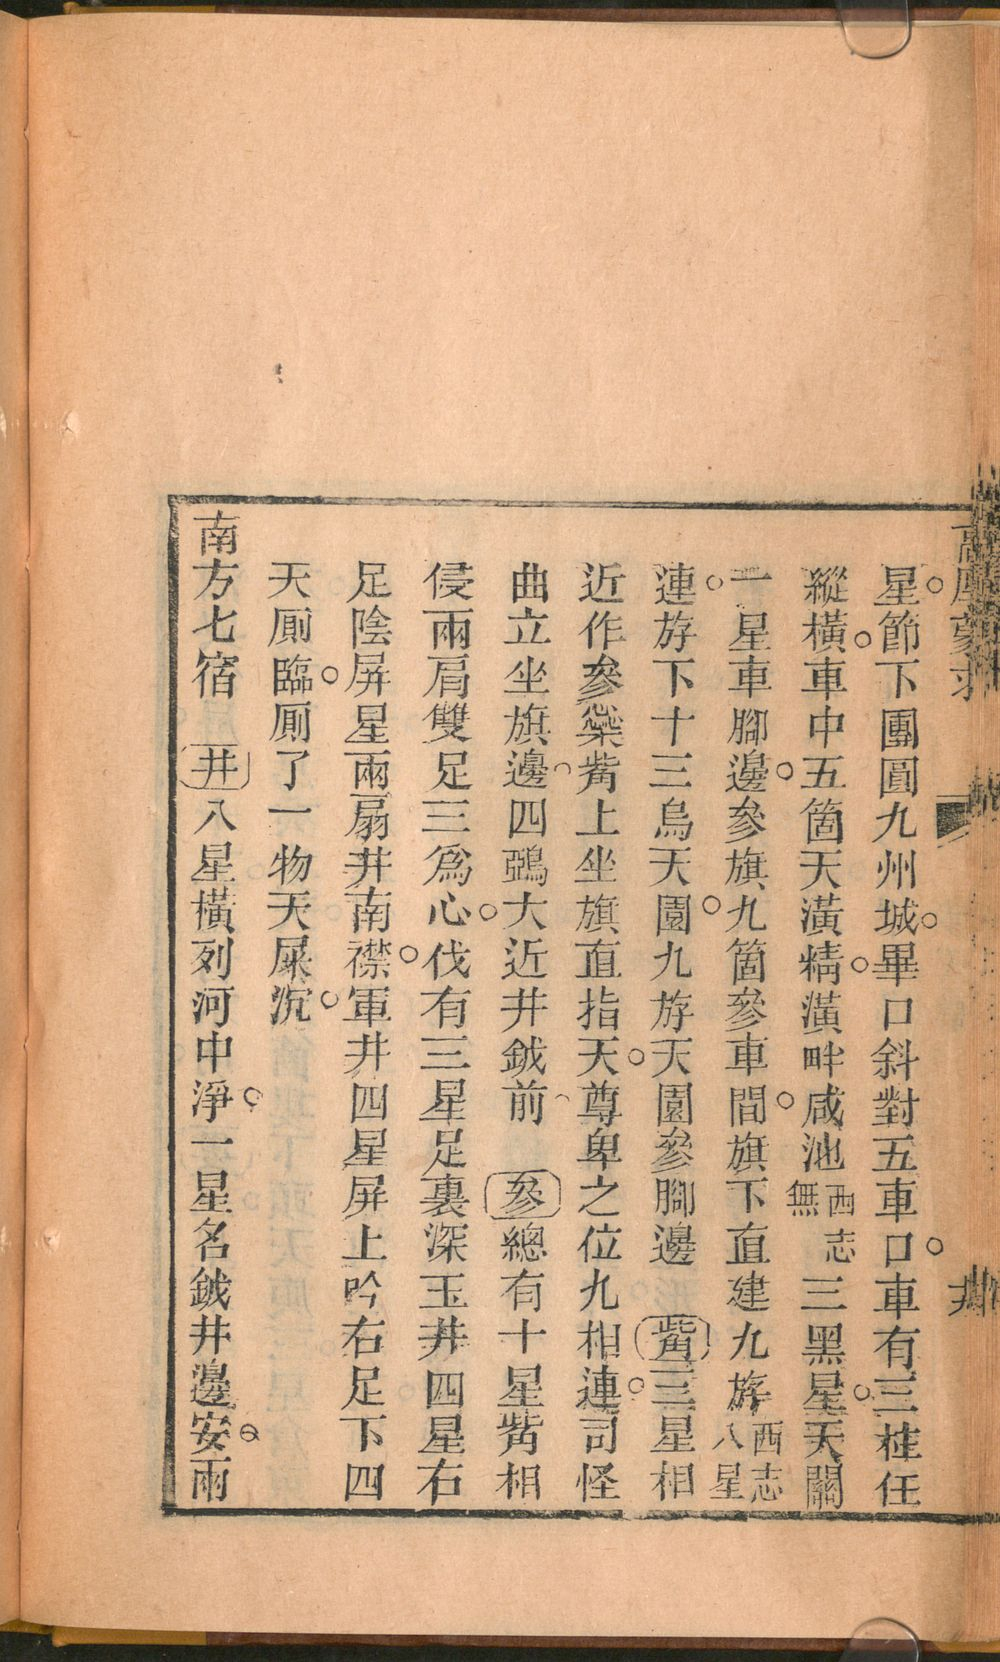 星節下團圓九州城畢口斜對五車口車有三柱任
縱橫車中五箇天潢精潢畔咸池西志無三黑星天關
一星車腳邊參旗九箇參車間旗下直建九斿西志八星
連斿下十三烏天園九斿天園參腳邊觜三星相
近作參蘂觜上坐旗直指天尊卑之位九相連司怪
曲立坐旗邊四鵶大近井鉞前參總有十星觜相
侵兩肩雙足三爲心伐有三星足裏深玉井四星右
足陰屏星兩扇井南襟軍井四星屏上吟右足下四
天厠臨厠了一物天屎沉
南方七宿井八星橫列河中淨一星名鉞井邊安兩